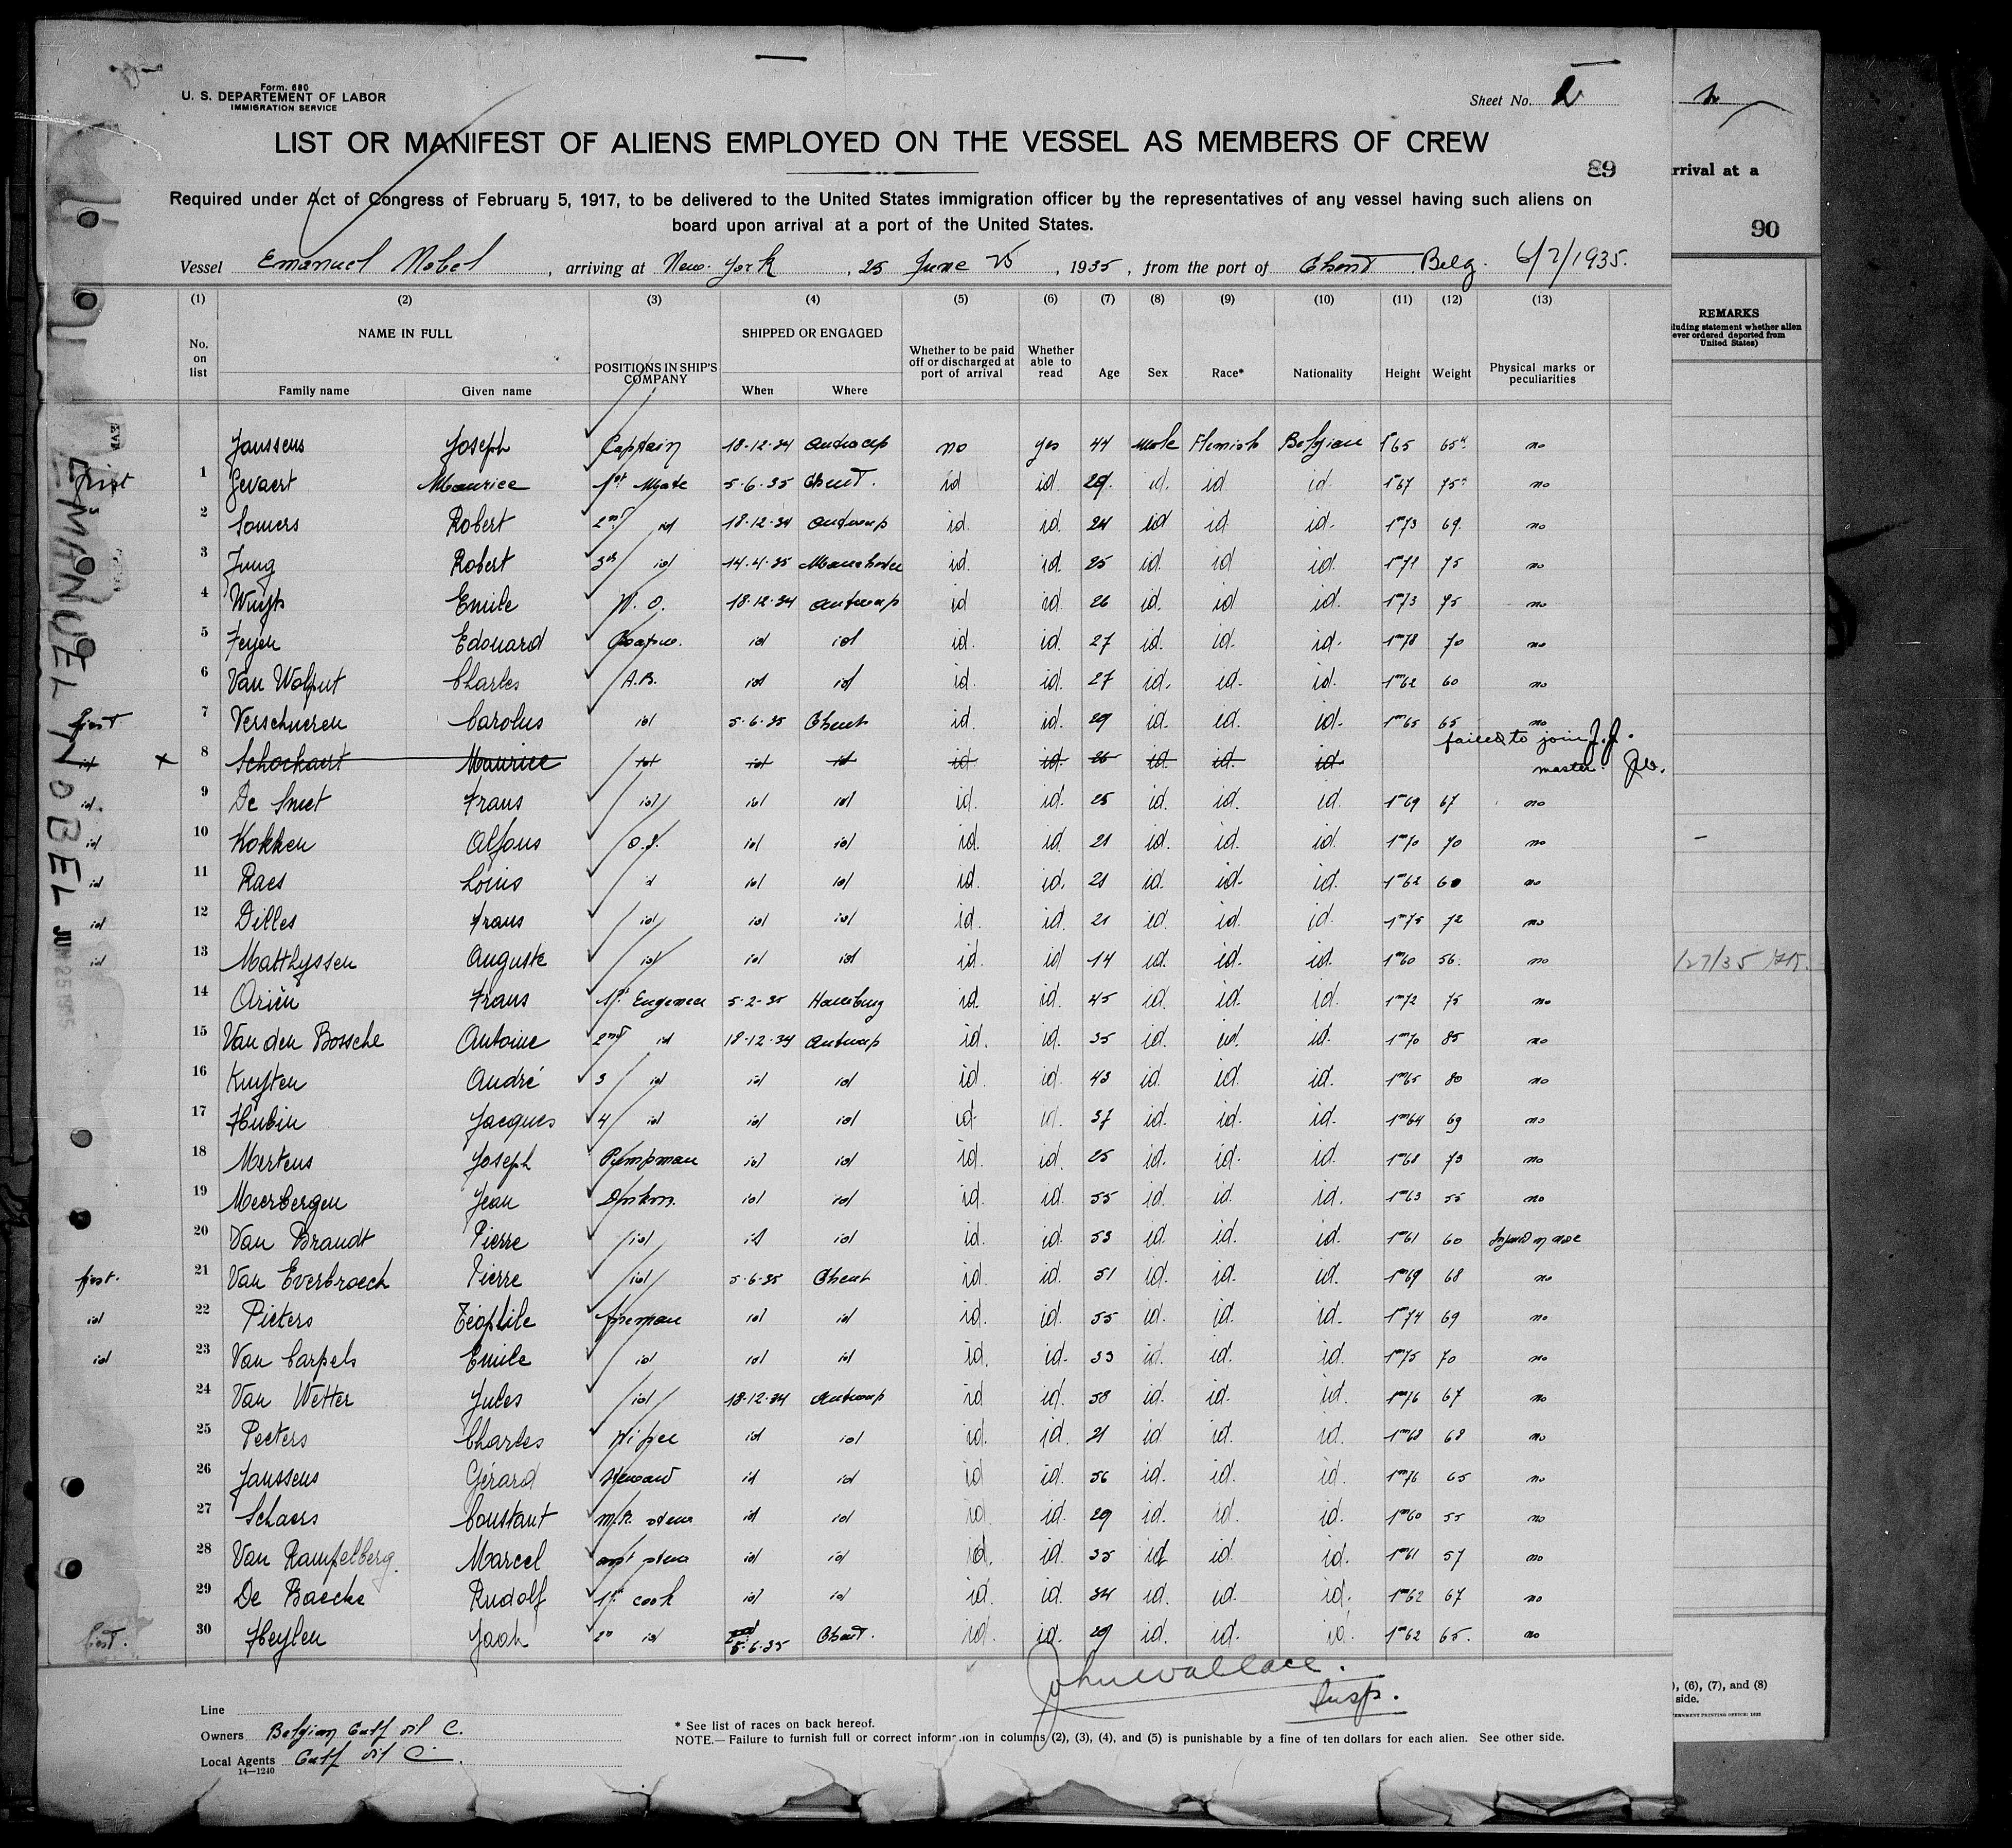 Form. 680
U. S. DEPARTEMENT OF LABOR
IMMIGRATION SERVICE
Sheet No.
LIST OR MANIFEST OF ALIENS EMPLOYED ON THE VESSEL AS MEMBERS OF CREW
89
Required under Act of Congress of February 5, 1917, to be delivered to the United States immigration officer by the representatives of any vessel having such aliens on
board upon arrival at a port of the United States.
Vessel Emanuel Nobel, arriving at New-York, 25 June 25, 1935, from the port of Ghent Belg. 6/7/1935.
(1) (2) (3) (4) (5) (6) (7) (8) (9) (10) (11) (12) (13)
No. on list NAME IN FULL Family name Given name POSITIONS IN SHIP'S COMPANY SHIPPED OR ENGAGED When Where Whether to be paid off or discharged at port of arrival Whether able to read Age Sex Race* Nationality Height Weight Physical marks or peculiarities
Janssens Joseph Captain 18-12-34 Antwerp no yes 44 male Flemish Belgian 1m65 65k no
first 1 Gevaert Maurice 1st Mate 5-6-35 Ghent. id id. 29. id. id id. 1m67 75k no
2 Somers Robert 2nd id 18-12-34 Antwerp id. id. 24 id id id. 1m73 69. no
3 Jung Robert 3rd id 14-4-35 Manchester id. id. 25 id. id id. 1m71 75 no
4 Wuyts Emile W. O. 18-12-34 Antwerp id id. 26 id. id id. 1m73 75 no
5 Feyen Edouard Boatsw. id id id. id. 27 id. id. id. 1m78 70 no
6 Van Wolput Charles A.B. id id id. id. 27 id. id. id. 1m62 60 no
first 7 Verschueren Carolus id 5-6-35 Ghent id. id. 29 id. id. id. 1m65 65 no
id x 8 Schockaert Maurice id id id id id. 26 id. id. id failed to join J.J. master. JW.
id. 9 De Smet Frans id id id id. id. 25 id. id. id. 1m69 67 no
id 10 Kokken Alfons O.S. id id id. id 21 id. id. id. 1m70 70 no
id 11 Raes Louis id id id id. id. 21 id. id. id. 1m62 60 no
id 12 Dilles Frans id id id id. id. 21 id. id. id. 1m75 72 no
id 13 Matthyssen Auguste id id id id. id 14 id. id. id. 1m60 56. no
14 Ariën Frans 1st Engeneer 5-2-35 Hamburg id. id. 45 id. id. id. 1m72 75 no
15 Van den Bossche Antoine 2nd id 18-12-34 Antwerp id. id. 35 id. id. id. 1m70 85 no
16 Kuyten André 3 id id id id. id. 43 id. id. id. 1m65 80 no
17 Hubin Jacques 4 id id id id. id. 37 id. id. id. 1m64 69 no
18 Mertens Joseph Pumpman id id id. id. 25 id. id. id. 1m68 73 no
19 Meerbergen Jean id id id. id. 55 id. id. id. 1m63 55 no
20 Van Brandt Pierre id id id id. id. 53 id. id. id. 1m61 60
first. 21 Van Everbroeck Pierre id 5-6-35 Ghent id. id. 51 id. id. id. 1m69 68 no
id 22 Pieters Téophile fireman id id id. id. 55 id. id. id. 1m74 69 no
id 23 Van Carpels Emile id id id id. id. 33 id. id. id. 1m75 70 no
24 Van Wetter Jules id 18-12-34 Antwerp id id. 58 id. id. id. 1m76 67 no
25 Peeters Charles Wiper id id id. id. 21 id id. id. 1m68 68 no
26 Janssens Gérard Steward id id id id. 56 id. id. id. 1m76 65 no
27 Schaers Constant id id id. id. 29 id. id. id. 1m60 55 no
28 Van Rampelberg. Marcel id id id. id. 35 id id. id. 1m61 57 no
29 De Baecke Rudolf 1st cook id id id. id. 34 id. id. id. 1m62 67 no
first. 30 Heylen Jaak 2n id 5-6-35 Ghent. id. id. 29 id. id. id. 1m62 65. no
John Wallace.
Insp.
Line
Owners Belgian Gulf Oil C.
Local Agents Gulf Oil C.
14—1240
* See list of races on back hereof.
NOTE.— Failure to furnish full or correct information in columns (2), (3), (4), and (5) is punishable by a fine of ten dollars for each alien. See other side.
EMANUEL NOBEL JUN 25 1935
rrival at a
90
REMARKS
luding statement whether alien
ever ordered deported from
United States)
/27/35
), (6), (7), and (8)
side.